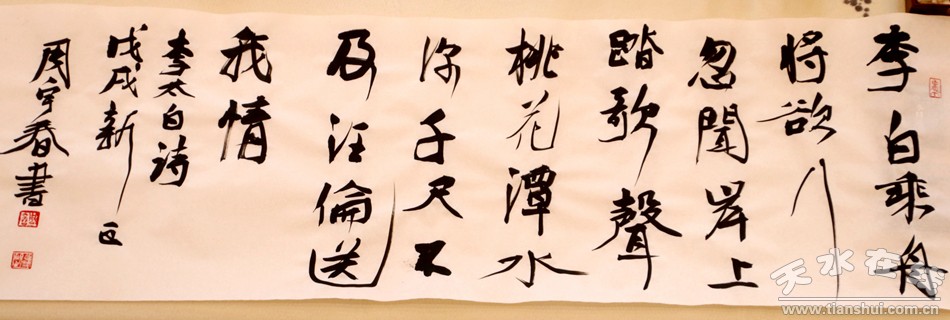 李白乘舟
将欲行
忽聞岸上
踏歌聲
桃花潭水
深千尺不
及汪倫送
我情
李太白诗
戊戌新正
周宇春書
天水在线
www.tianshui.com.cn